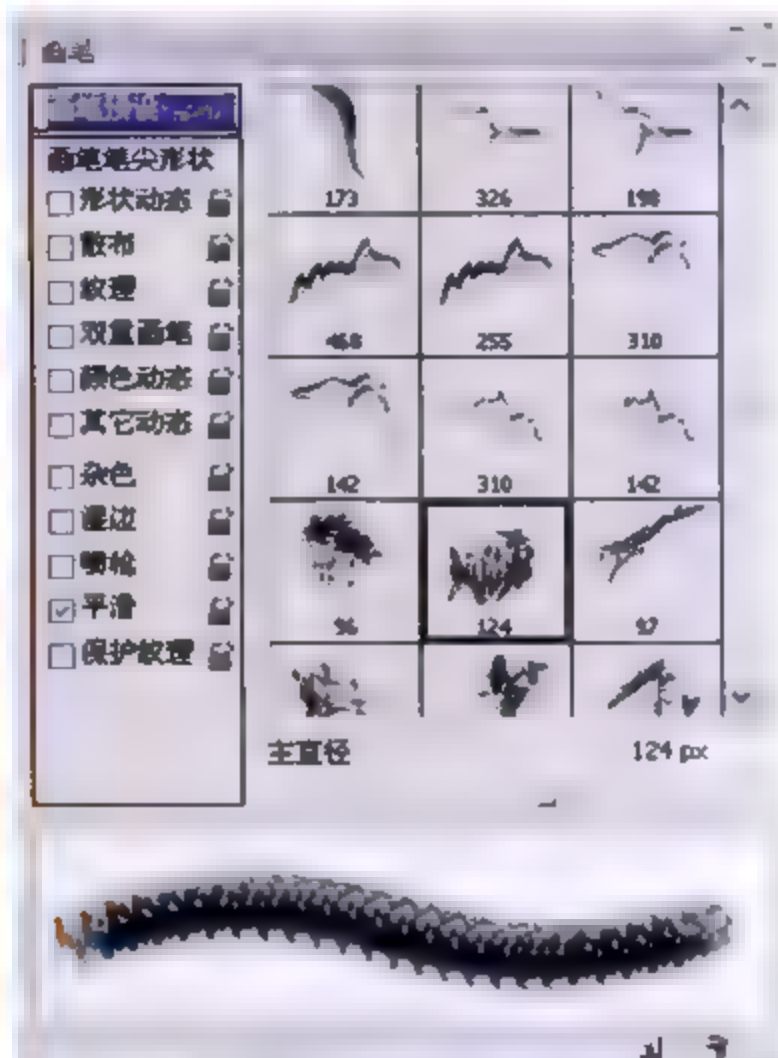 画笔
画笔笔尖形状
形状动态
散布
纹理
双重画笔
颜色动态
其它动态
杂色
湿边
喷枪
平滑
保护纹理
173 326 198
468 255 310
142 310 142
96 124 97
主直径 124 px